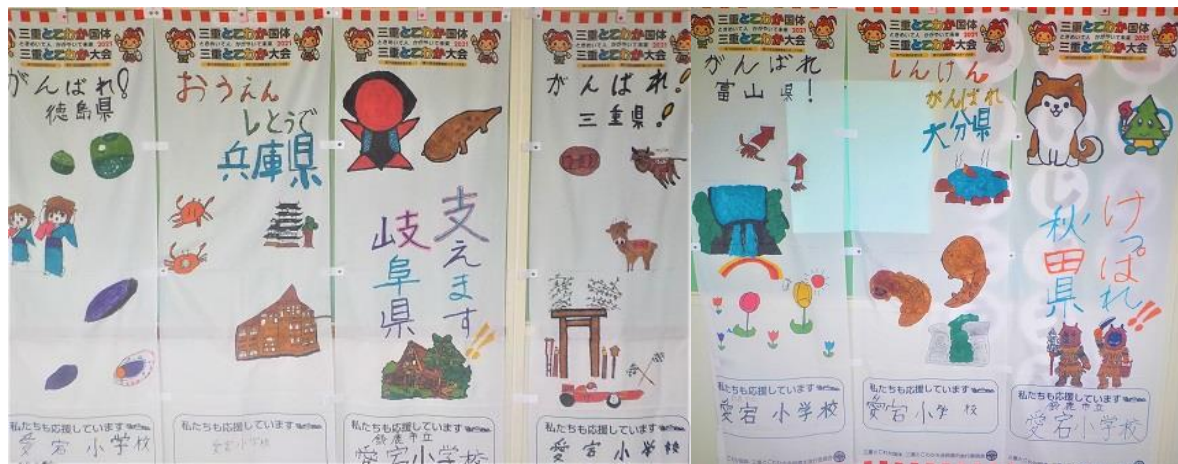 三重とこわか国体
ときめいて人 かがやいて未来 2021
三重とこわか大会
がんばれ!
徳島県
私たちも応援しています
愛宕小学校
三重とこわか国体
ときめいて人 かがやいて未来 2021
三重とこわか大会
おうえん
しとうで
兵庫県
私たちも応援しています
愛宕小学校
三重とこわか国体
ときめいて人 かがやいて未来 2021
三重とこわか大会
支えます!!
岐阜県
私たちも応援しています
鈴鹿市立
愛宕小学校
三重とこわか国体
ときめいて人 かがやいて未来 2021
三重とこわか大会
がんばれ!
三重県!
私たちも応援しています
愛宕小学校
三重とこわか国体
ときめいて人 かがやいて未来 2021
三重とこわか大会
がんばれ
富山県!
私たちも応援しています
愛宕小学校
三重とこわか国体
ときめいて人 かがやいて未来 2021
三重とこわか大会
しんけん
がんばれ
大分県
私たちも応援しています
愛宕小学校
三重とこわか国体
ときめいて人 かがやいて未来 2021
三重とこわか大会
けっぱれ!!
秋田県
私たちも応援しています
鈴鹿市立
愛宕小学校